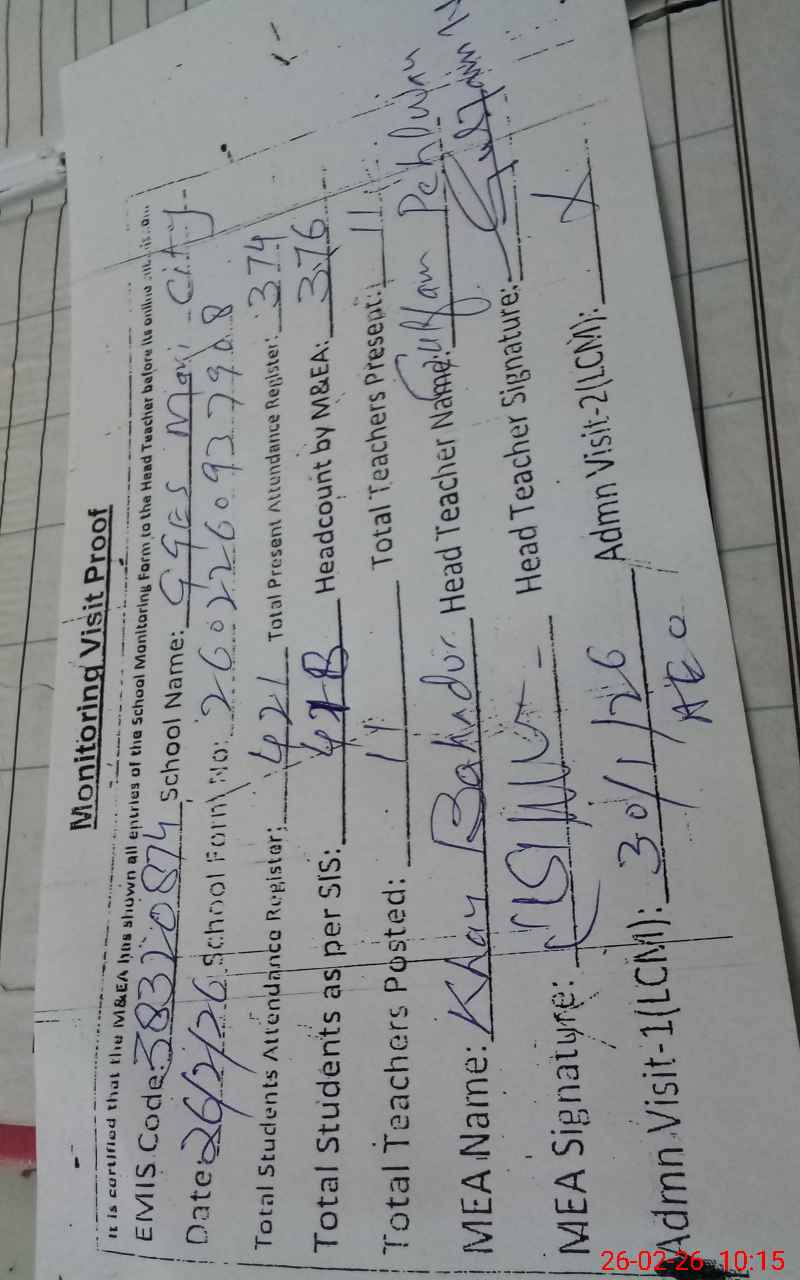 Monitoring Visit Proof
It is certified that the M&EA has shown all entries of the School Monitoring Form to the Head Teacher before its online
EMIS Code: 38320874 School Name: GGES Mari City
Date: 26/2/26 School Form No: 2602260937908
Total Students Attendance Register: 421 Total Present Attendance Register: 374
Total Students as per SIS: Headcount by M&EA: 376
Total Teachers Posted: 14 Total Teachers Present: 11
MEA Name: Khan Bahadur Head Teacher Name:
MEA Signature: Head Teacher Signature:
Admn Visit-1(LCM): 30/1/26 Admn Visit-2(LCM): X
AEO
26-02-26 10:15